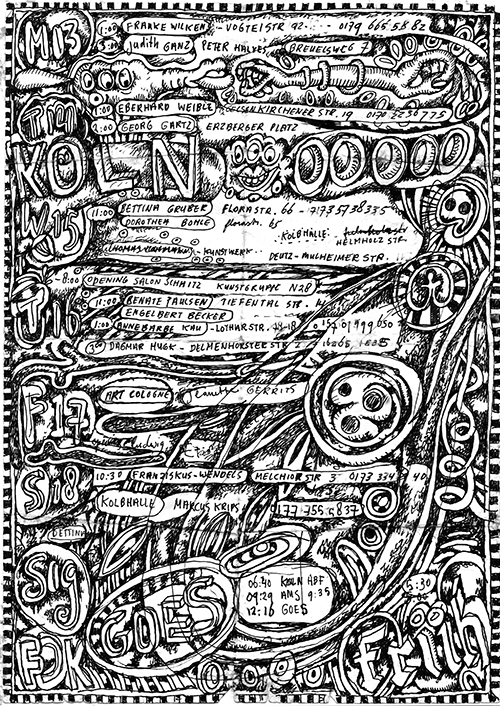 M13
1:00 FRAUKE WILKEN - VOGTEISTR 92 0179 665 58 82
Judith GANZ, PETER HALVES GREVELSWEG 7
T14
1:00 EBERHARD WEIBLE GELSENKIRCHENER STR. 19
2:00 GEORG GARTZ ERZBERGER PLATZ
KÖLN
W15
11:00 BETTINA GRUBER FLORASTR. 66
DOROTHEA BOHLE
KOLBHALLE
HELMHOLZ STR.
KUNSTWERK
DEUTZ-MULHEIMER STR.
T16
8:00 OPENING SALON SCHMITZ KUNSTGRUPPE N28
11:00 RENATE PAULSEN TIEFENTAL STR.
ENGELBERT BECKER
1:00 ANNEBARBE KAU - LOTHARSTR. 14-18
DAGMAR HUGK - DELMENHORSTER STR
F17
ART COLOGNE GERRITS
Ludwig
S18
10:30 FRANZISKUS-WENDELS MELCHIOR STR 3 0173 334 40
KOLBHALLE MARCUS KRIPS 0177 755 5837
BETTINA
S19
GOES
06:40 KOLN HBF
09:29 AMS 9:35
12:16 GOES
5:30
FDK
Früh